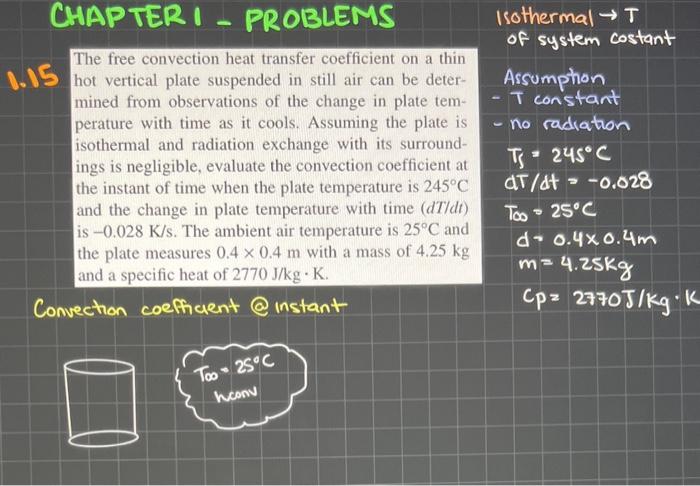 CHAPTER 1 - PROBLEMS
1.15
The free convection heat transfer coefficient on a thin
hot vertical plate suspended in still air can be deter-
mined from observations of the change in plate tem-
perature with time as it cools. Assuming the plate is
isothermal and radiation exchange with its surround-
ings is negligible, evaluate the convection coefficient at
the instant of time when the plate temperature is 245°C
and the change in plate temperature with time (dT/dt)
is −0.028 K/s. The ambient air temperature is 25°C and
the plate measures 0.4 × 0.4 m with a mass of 4.25 kg
and a specific heat of 2770 J/kg · K.
Convection coefficient @ instant
T∞ = 25°C
hconv
Isothermal → T
of system costant
Assumption
- T constant
- no radiation
Ts = 245°C
dT/dt = -0.028
T∞ = 25°C
d = 0.4x0.4m
m = 4.25Kg
Cp = 2770J/Kg·K